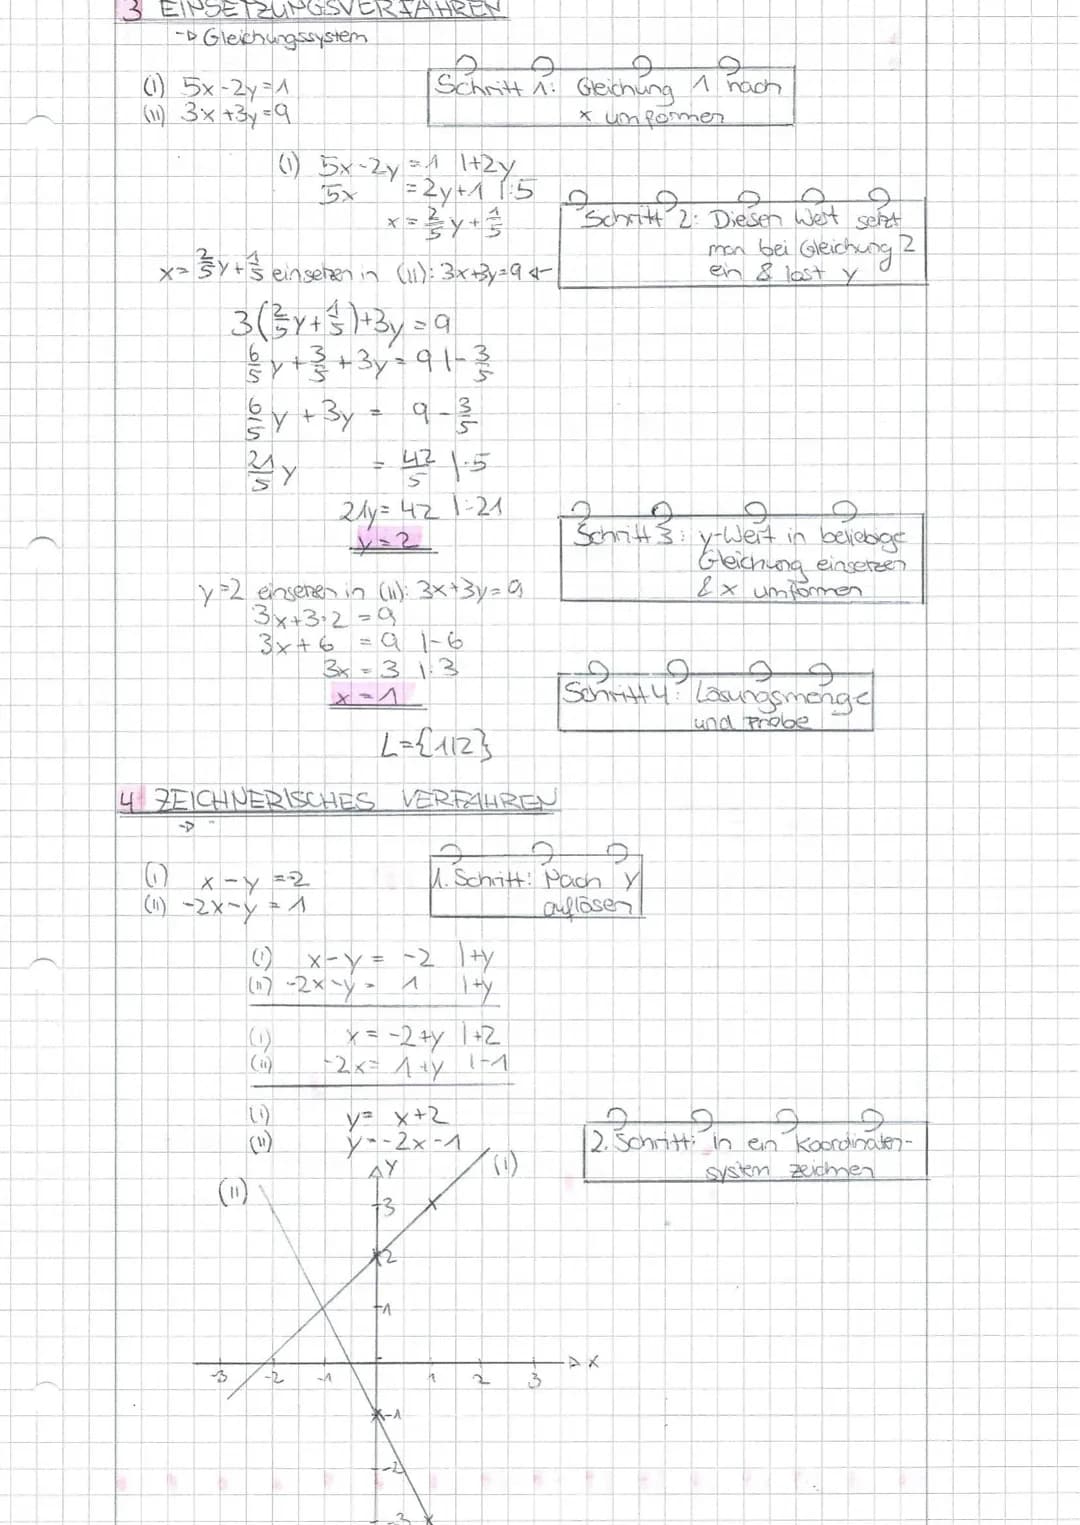 3 EINSETZUNGSVERFAHREN
→ Gleichungssystem
(I) 5x-2y=1
(II) 3x+3y=9
Schritt 1: Gleichung 1 nach
x umformen
(I) 5x-2y=1 |+2y
5x =2y+1 |:5
x=2/5y+1/5
Schritt 2: Diesen Wert setzt
man bei Gleichung 2
ein & löst y
x=2/5y+1/5 einsetzen in (II): 3x+3y=9 ←
3(2/5y+1/5)+3y=9
6/5y+3/5+3y=9 |-3/5
6/5y+3y = 9-3/5
21/5y = 42/5 |·5
21y=42 |:21
y=2
Schritt 3: y-Wert in beliebige
Gleichung einsetzen
& x umformen
y=2 einsetzen in (II): 3x+3y=9
3x+3·2=9
3x+6 =9 |-6
3x=3 |:3
x=1
Schritt 4: Lösungsmenge
und Probe
L={1|2}
4 ZEICHNERISCHES VERFAHREN
→
(I) x-y=-2
(II) -2x-y=1
1. Schritt: Nach y
auflösen
(I) x-y= -2 |+y
(II) -2x-y= 1 |+y
(I) x=-2+y |+2
(II) -2x= 1+y |-1
(I) y= x+2
(II) y=-2x-1
2. Schritt: in ein Koordinaten-
system zeichnen
y
(I)
(II)
3
2
1
-3 -2 -1 1 2 3 x
-1
-2
-3